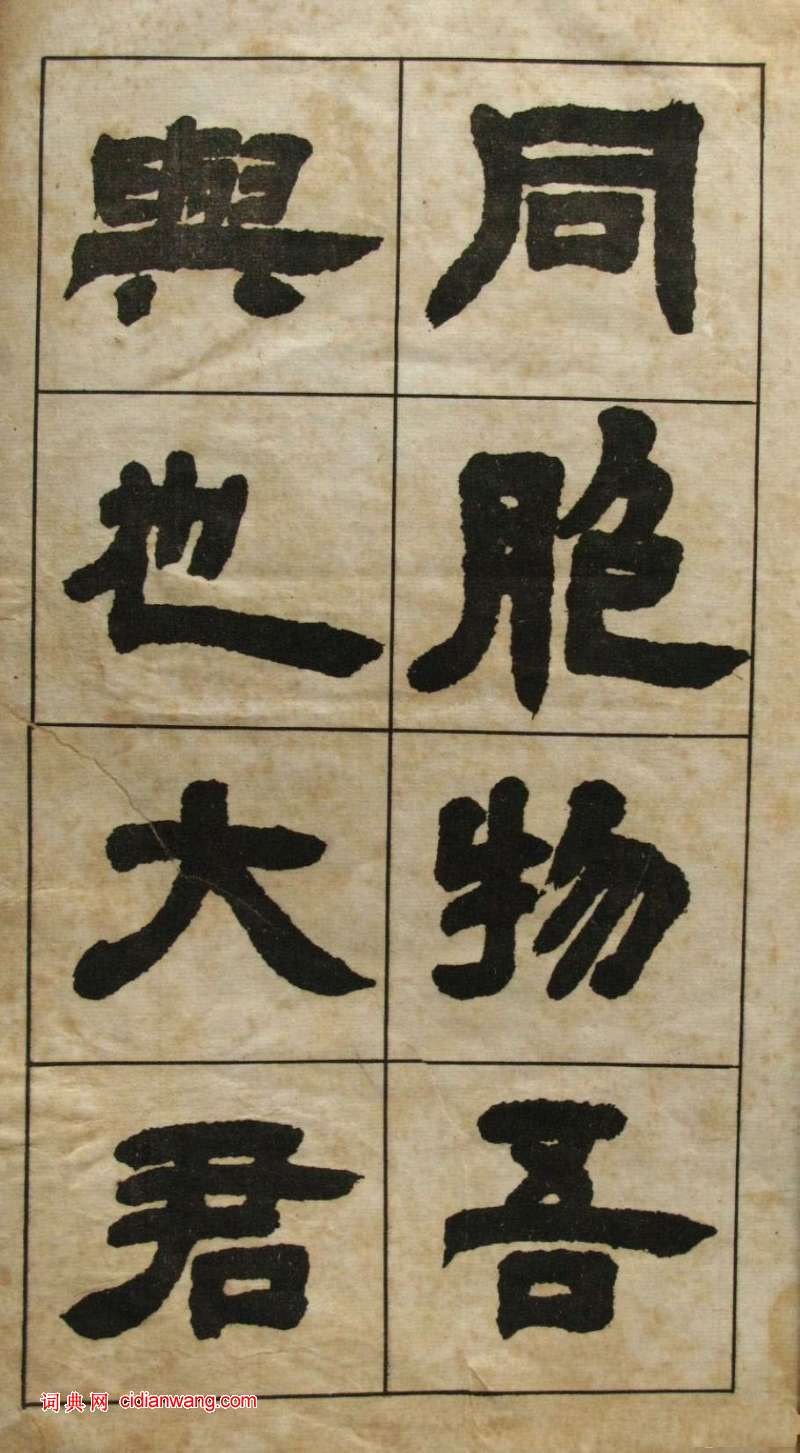 同胞物吾
與也大君
词典网 cidianwang.com